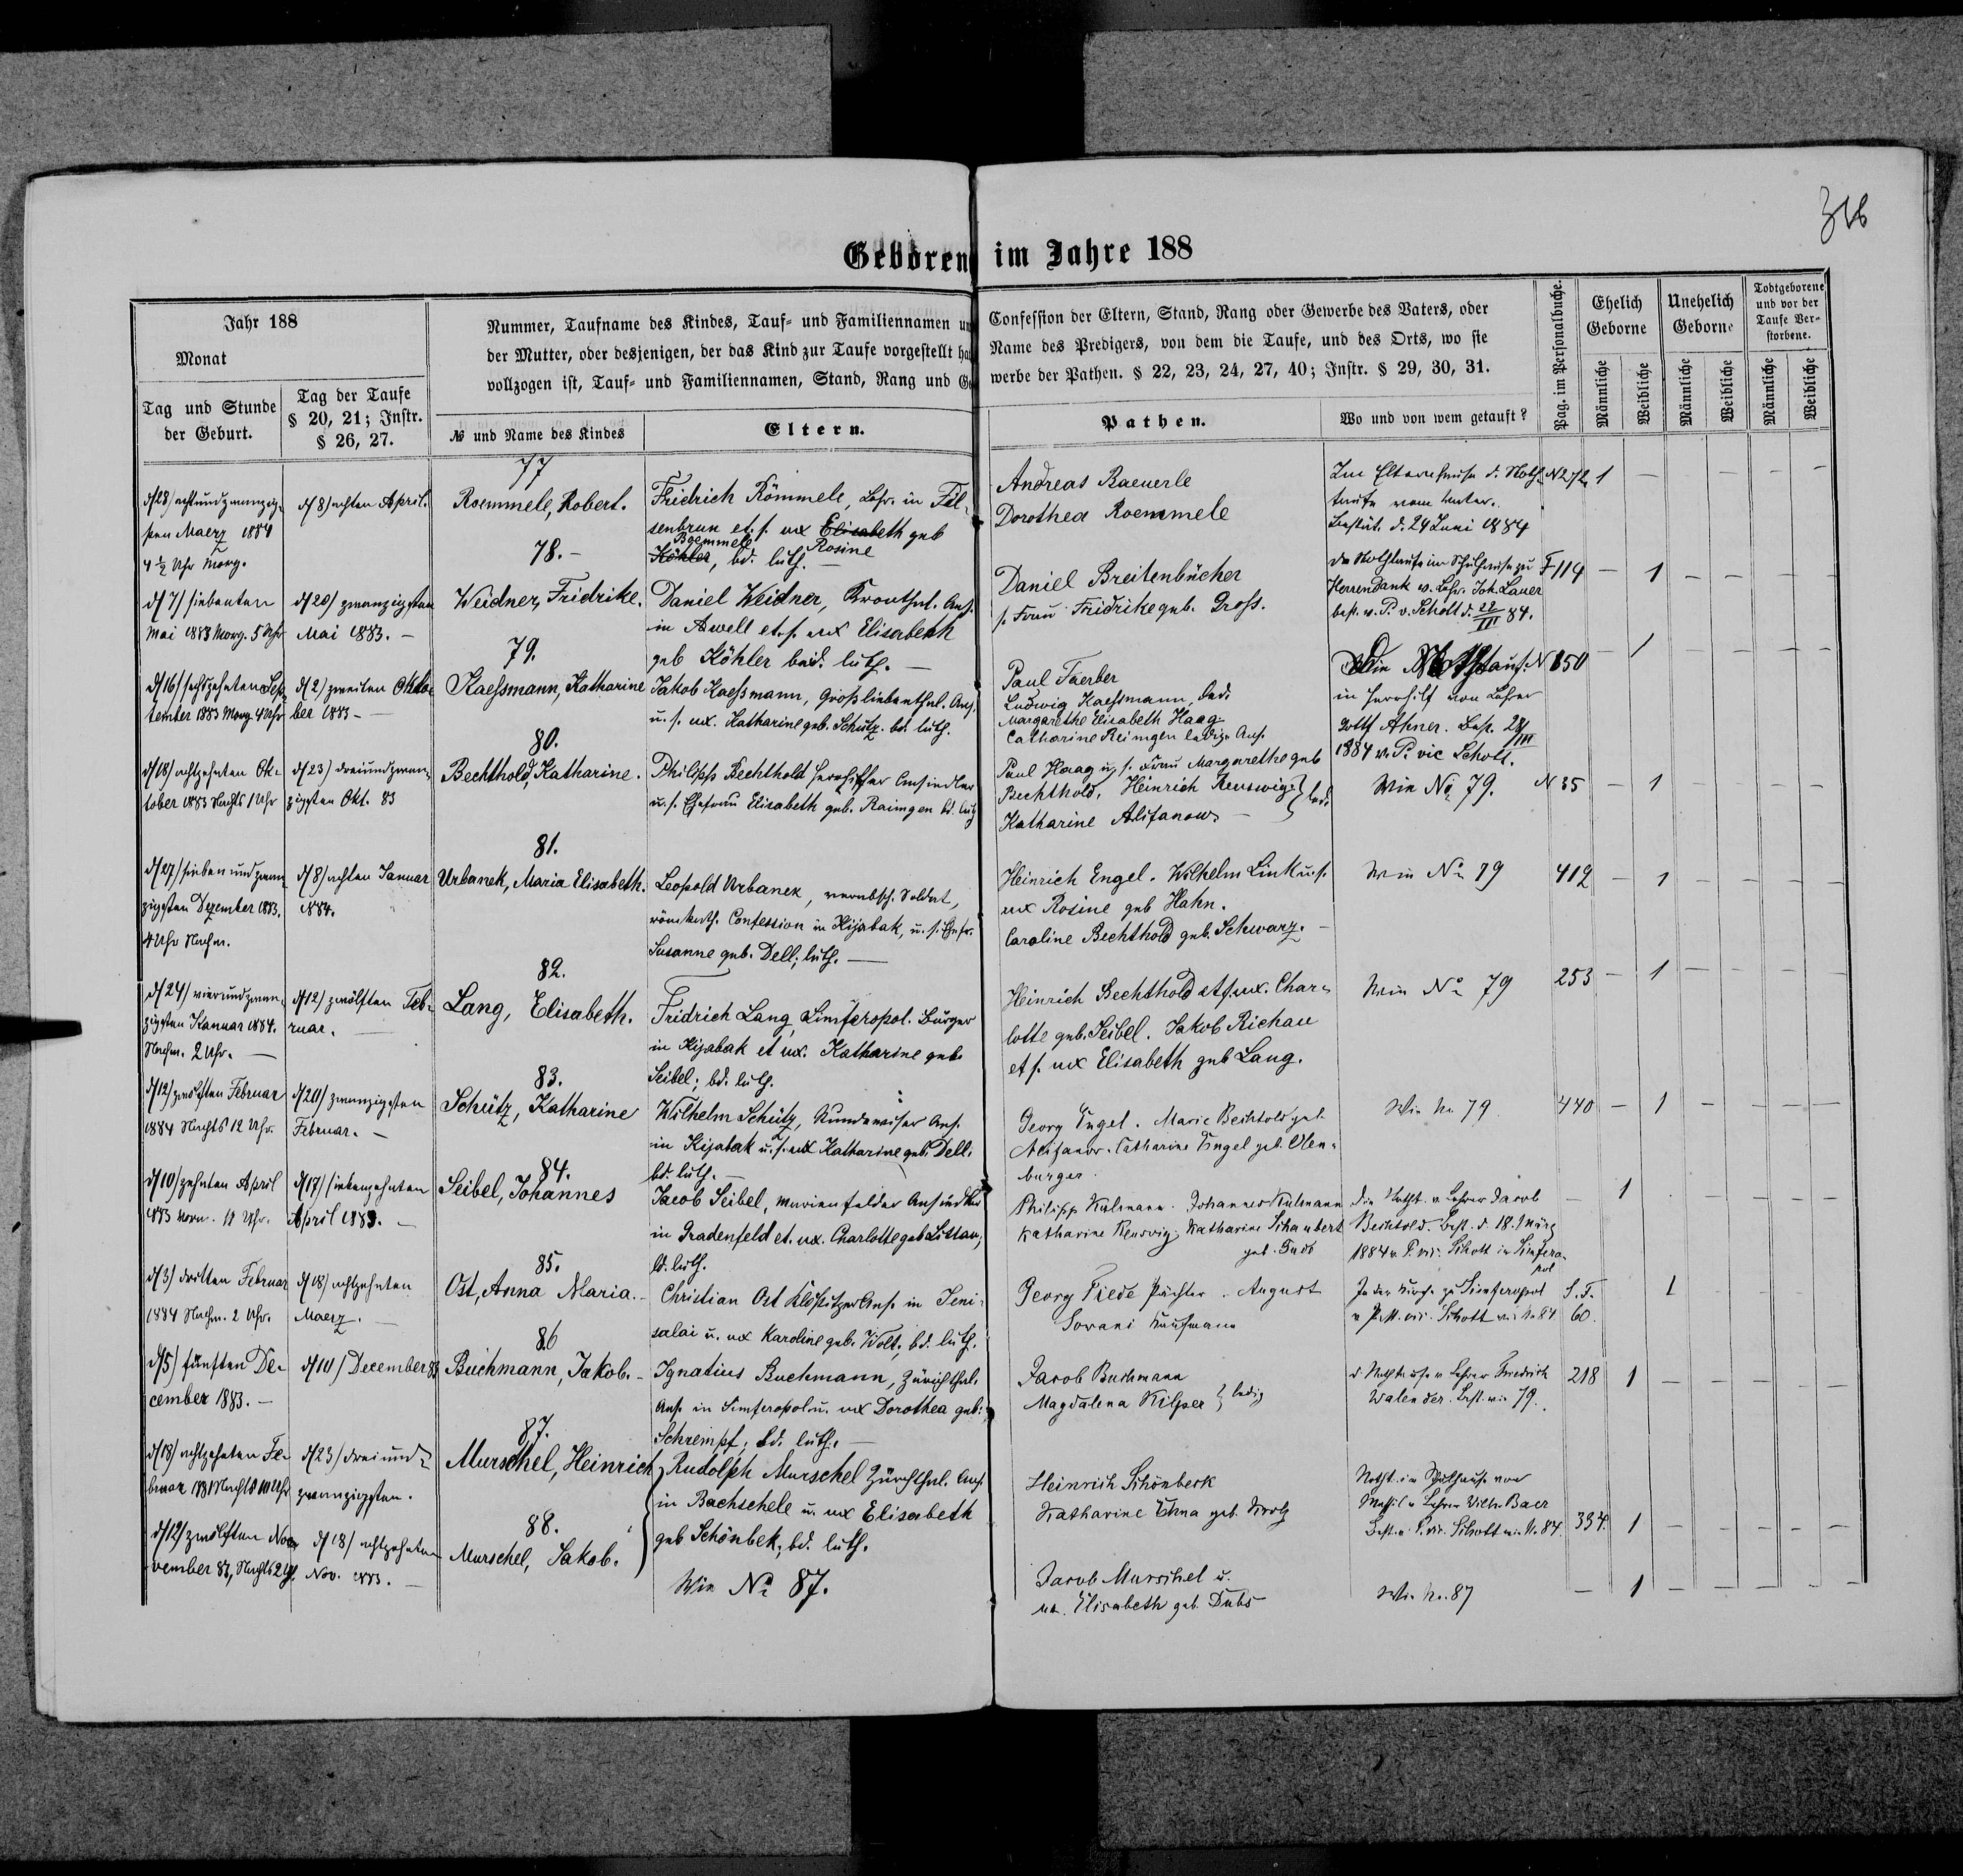 Geboren im Jahre 188
Jahr 188
Monat
Tag und Stunde der Geburt.
Tag der Taufe § 20, 21; Instr. § 26, 27.
Nummer, Taufname des Kindes, Tauf- und Familiennamen
der Mutter, oder desjenigen, der das Kind zur Taufe vorgestellt
vollzogen ist, Tauf- und Familiennamen, Stand, Rang und
№ und Name des Kindes
Eltern.
Confession der Eltern, Stand, Rang oder Gewerbe des Vaters, oder
Name des Predigers, von dem die Taufe, und des Orts, wo sie
werbe der Pathen. § 22, 23, 24, 27, 40; Instr. § 29, 30, 31.
Pathen.
Wo und von wem getauft?
Pag. im Personalbuche.
Ehelich Geborne
Unehelich Geborne
Todtgeborene und vor der Taufe Verstorbene.
Männliche
Weibliche
Männliche
Weibliche
Männliche
Weibliche
77
d/28/ achtundzwanzig-
sten Maerz 1884
4 ½ Uhr Morg.
d/8/ achten April.
Roemmele, Robert.
Fridrich Römmele, Lehr. in Fil-
senbrun et. s. ux Elisabeth geb
Roemmele Rosine
Köhler, bd. luth. —
Andreas Raeuerle
Dorothea Roemmele
Im Elternhause d. Noth-
taufe vom Vater.
Bestät. d. 24 Juni 1884
N 272
1
78.-
d/7/ siebenten
Mai 1883 Morg. 5 Uhr
d/20/ zwanzigsten
Mai 1883. -
Weidner, Fridrike.
Daniel Weidner, Kronthal. Ans.
in Aswell et. s. ux Elisabeth
geb Köhler beid. luth. —
Daniel Breitenbücher
s. Frau Fridrike geb. Gross.
Die Nothtaufe im Schulhause zu
Herrendank v. Lehr. Joh. Lauer
best. v. P. v. Schott d. 28/III 84.
F 114
1
79.
d/16/ sechszehnten Sep-
tember 1883 Morg. 4 Uhr
d/2/ zweiten Okto-
ber 1883 -
Kaessmann, Katharine
Jakob Kaessmann, Grossliebenthal. Ans.
u. s. ux. Katharine geb. Schütz. bd. luth.
Paul Faerber
Ludwig Kaessmann, led.
Margarethe Elisabeth Haag
Catharine Reimgen ledige Ans.
Die Nothtauf.
in Herrhilf von Lehrer
Gottf Ahner. Best. 28/III
1884 v. P. vic Schott.
N 850
1
80.
d/18/ achtzehnten Ok-
tober 1883 Nachts 1 Uhr
d/23/ dreiundzwan-
zigsten Okt. 83
Bechthold, Katharine.
Philipp Bechthold Herrhilfer Ansiedler
u. s. Ehefrau Elisabeth geb. Raimgen bd. luth
Paul Haag u. s. Frau Margarethe geb
Bechthold, Heinrich Reuswig } led.
Katharine Alifanow -
Wie No 79.
N 35
1
81.
d/27/ siebenundzwan-
zigsten Dezember 1883.
4 Uhr Nachm.
d/8/ achten Januar
1884.
Urbanek, Maria Elisabeth.
Leopold Urbanek, verabsch. Soldat,
röm. kath. Confession in Kijabak, u. s. Ehefr.
Susanne geb. Dell; luth. —
Heinrich Engel. Wilhelm Link u. s.
ux Rosine geb Hahn.
Caroline Bechthold geb. Schwarz. -
Wie No 79
412
1
82.
d/24/ vierundzwan-
zigsten Januar 1884.
Nachm. 2 Uhr. —
d/12/ zwölften Feb-
ruar.
Lang, Elisabeth.
Fridrich Lang, Simferopol. Bürger
in Kijabak et ux. Katharine geb.
Seibel; bd. luth.
Heinrich Bechthold et s. ux. Char-
lotte geb. Seibel. Jakob Richau
et s. ux Elisabeth geb Lang.
Wie No 79
253
1
83.
d/12/ zwölften Februar
1884 Nachts 12 Uhr.
d/20/ zwanzigsten
Februar. -
Schütz, Katharine
Wilhelm Schütz, Ans.
in Kijabak u. s. ux Katharine geb. Dell.
bd. luth. —
Georg Engel. Marie Bechtold geb
Alifanow. Catharine Engel geb. Olen-
burger
Wie No 79.
440
1
84.
d/10/ zehnten April
1883 Vorm. 11 Uhr.
d/17/ siebenzehnten
April 1883. -
Seibel, Johannes
Jacob Seibel, Marienfelder Ansiedler
in Gradenfeld et. ux. Charlotte geb Littau,
bd. luth.
Philipp Kulmann. Johannes Kulmann
Katharine Reuswig, Katharine Schaubert
geb. Fuss
Die Notht. v. Lehrer Jacob
Bechtold. Best. d. 18. März
1884 v. P. vic. Schott in Simfero-
pol
1
85.
d/3/ dritten Februar
1884 Nachm. 2 Uhr.
d/18/ achtzehnten
Maerz. —
Ost, Anna Maria. -
Christian Ost Klöstitzer Ans. in Jeni-
salai u. ux Karoline geb. Wolt, bd. luth.
Georg Fiede Pächter. August
Sovani Kaufmann
In der Kirche zu Simferopol
v. P. vic. Schott wie No 84
S. F.
60.
1
86
d/5/ fünften De-
cember 1883. -
d/10/ December 83
Buchmann, Jakob. -
Ignatius Buchmann, Zürichthal.
Ans. in Simferopol u. ux Dorothea geb.
Schrempf, bd. luth. —
Jacob Buchmann
Magdalena Kilper } ledig
d. Nothtaufe v. Lehrer Friedrich
Walender. Best. wie 79.
218
1
87.
d/18/ achtzehnten Fe-
bruar 1881 Nachts 10 Uhr
d/23/ dreiund-
zwanzigsten.
Murschel, Heinrich
Rudolph Murschel Zürchthal. Ans.
in Bachschele u. ux Elisabeth
geb Schönbek, bd. luth.
Heinrich Schönbeck
Katharine Ehna geb.
Notht. im Schulhause von
v. Lehrer Wilh. Baer
Best. v. P. vic. Schott wie No 84.
334.
1
88.
d/12/ zwölften No-
vember 83, Nachts 2 Uhr.
d/18/ achtzehnten
Nov. 1883. —
Murschel, Jakob.
Wie No 87.
Jacob Murschel u.
ux. Elisabeth geb. Dubs
Wie No. 87
1